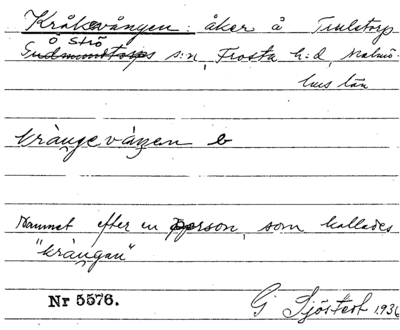 Kråksvången: åker å Trulstorp
Ö Strö
Gudmundtorps s:n, Frosta h:d, Malmö-
hus län
krångevången b
Namnet efter en person, som kallades
"krångan"
Nr 5576.
G Sjöstedt 1936